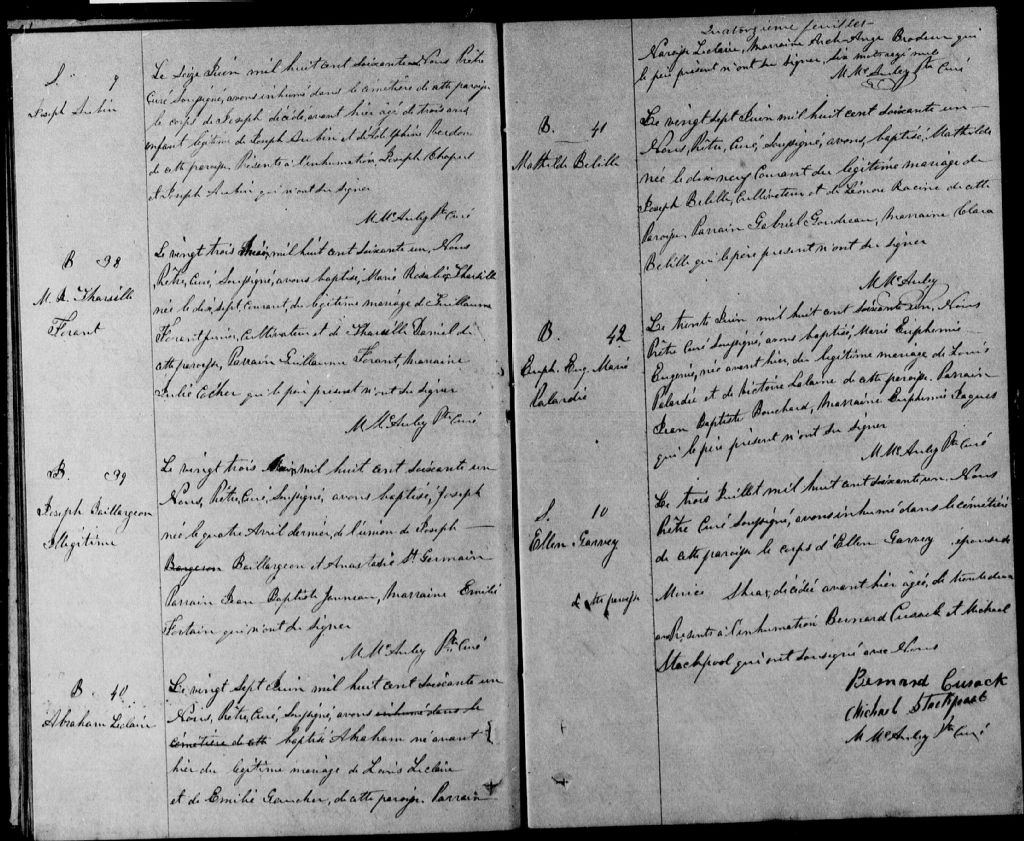 S. 9
Joseph Aubin
Le Seize Juin mil huit cent soixante un Nous Prêtre
Curé Soussigné, avons inhumé dans le cemetière de cette paroisse
le corps de Joseph décédé, avant hier âgé de trois ans
enfant légitime de Joseph Aubin et de Delphine Riendon
de cette paroisse. Présents à l'inhumation Joseph
et Joseph Aubin qui n'ont su signer
M McAuley Ptre Curé
B 38
M. R. Tharsille
Forant
Le vingt trois Juin, mil huit cent soixante un, Nous
Prêtre, Curé, Soussigné, avons baptisé, Marie Rosalie Tharsille
née le dix sept Courant, du légitime mariage de Guillaume
Forant fermier, Cultivateur et de Tharsille Daniel de
cette paroisse, Parrain Guillaume Forant, Marraine
Julie Cother qui le père present n'ont su signer
M McAuley Ptre Curé
B. 39
Joseph Baillargeon
Illégitime
Le vingt trois Juin, mil huit cent soixante un
Nous, Prêtre, Curé, Soussigné, avons baptisé, Joseph
né le quatre Avril dernier, de l'union de Joseph
Bargeron Baillargeon et Anastasie St Germain
Parrain Jean Baptiste Juneau, Marraine Emilie
Fontain qui n'ont su signer
M McAuley Ptre Curé
B. 40
Abraham Leclair
Le vingt sept Juin mil huit cent soixante un
Nous, Prêtre, Curé, Soussigné, avons inhumé dans le
cémetière de cette baptisé Abraham né avant
hier du légitime mariage de Louis Leclaire
et de Emilie Gaucher, de cette paroisse. Parrain
Quatorzième feuillet
Narcisse Leclaire, Marraine Arch-Ange Brodeur qui
le père présent n'ont su signer, six mots rayé nul
M McAuley Ptre Curé
B. 41
Mathilde Belille
Le vingt sept Juin mil huit cent soixante un
Nous, Prêtre, Curé, Soussigné, avons, baptisé, Mathilde
née le dix neuf Courant du légitime mariage de
Joseph Belille, Cultivateur et de Léonore Racine de cette
Paroisse, Parrain Gabriel Goudreau, Marraine Clara
Belille qui le père present n'ont su signer
M McAuley
B. 42
Euph. Eug. Marie
Palardie
Le trente Juin mil huit cent soixante un, Nous
Prêtre Curé Soussigné, avons baptisé, Marie Euphemie
Eugenie, née avant hier, du légitime mariage de Louis
Palardie et de Victoire Lalanne de cette paroisse. Parrain
Jean Baptiste Bouchard, Marraine Euphemie Jaques
qui le père présent n'ont su signer
M McAuley Ptre Curé
S. 10
Ellen Garvey
de cette paroisse
Le trois Juillet mil huit cent soixante un. Nous
Prêtre Curé Soussigné, avons inhumé dans le cemétière
de cette paroisse le corps d'Ellen Garvey épouse de
Morice Shea, décédée avant hier agée, de trente deux
ans Presents à l'inhumation Bernard Cusack et Michael
Stackpool qui ont soussigné avec Nous
Bernard Cusack
Michael Stackpool
M McAuley Ptre Curé